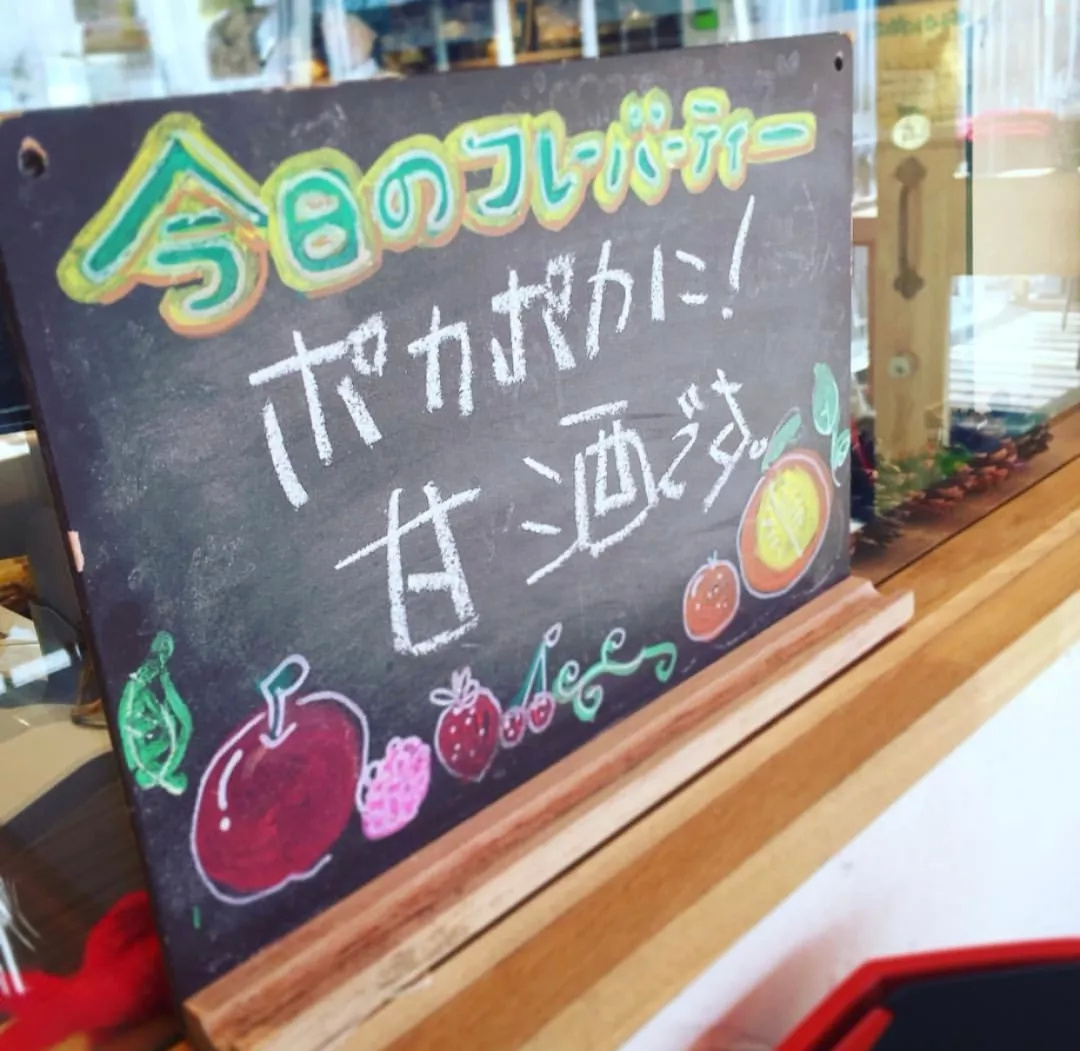 今日のフレーバーティー
ポカポカに!
甘酒です。